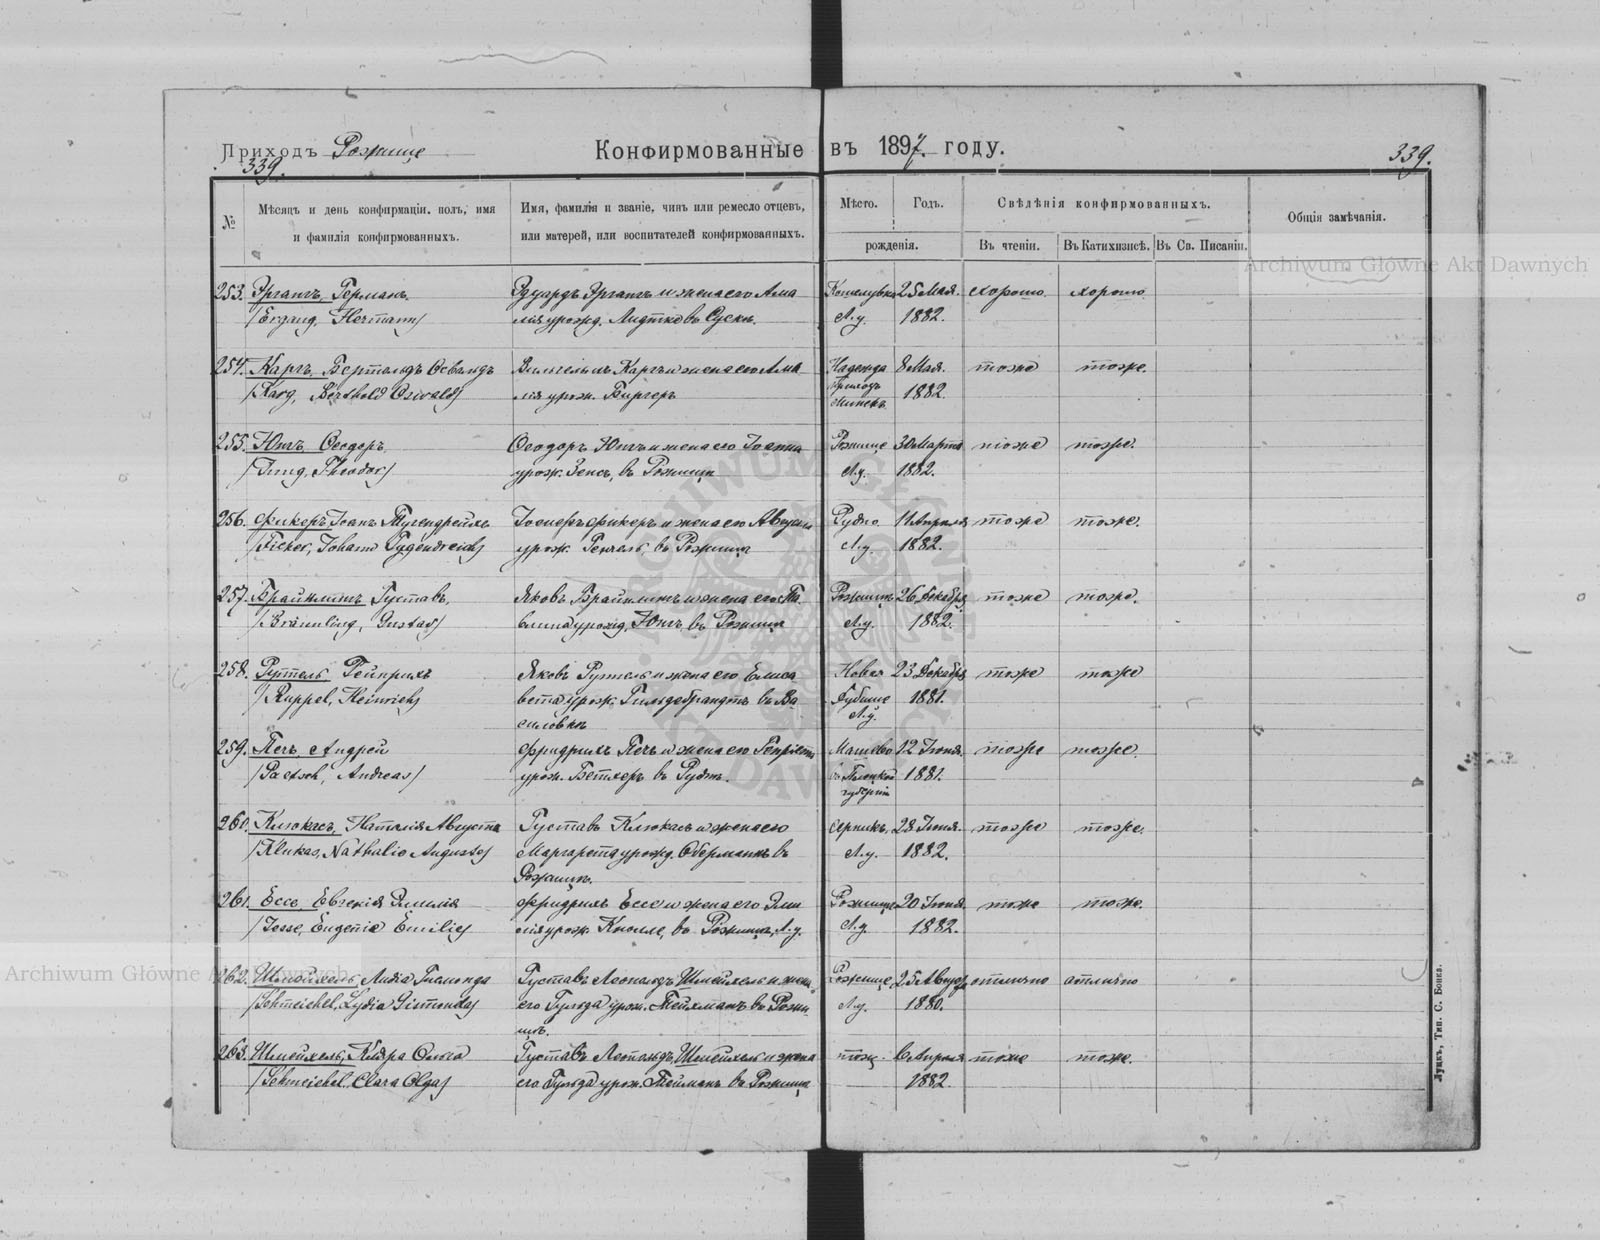 Приходъ Рожище
Конфирмованные въ 1897 году.
339.
339.
№
Мѣсяцъ и день конфирмаціи, полъ, имя
и фамилія конфирмованныхъ.
Имя, фамилія и званіе, чинъ или ремесло отцевъ,
или матерей, или воспитателей конфирмованныхъ.
Мѣсто.
Годъ.
рожденія.
Свѣдѣнія конфирмованныхъ.
Въ чтеніи.
Въ Катихизисѣ.
Въ Св. Писаніи.
Общія замѣчанія.
253. Эргангъ, Германъ.
/Ergang, Hermann/
Эдуардъ Эргангъ и жена его Ама
лія урожд.
25 Мая.
1882.
хорошо
хорошо
Л.у.
254. Каргъ, Бертольдъ Освальдъ
/Karg, Berthold Oswald/
Вильгельмъ Каргъ и жена его Ама
лія урож. Биргеръ
Надежда
приходъ
8 Мая.
1882.
тоже
тоже.
255. Юнгъ, Ѳеодоръ
/Jung, Theodor/
Ѳеодоръ Юнгъ и жена его
урож. въ Рожищѣ
Рожище
Л.у.
30 Марта
1882.
тоже
тоже.
256. Фикеръ Іоанъ Тугендрейхъ
/Ficker, Johann Tugendreich/
Іосифъ Фикеръ и жена его
урож. въ Рожищѣ
Рудно
Л.у.
11 Апреля
1882.
тоже
тоже.
257. Брайнлингъ Густавъ,
/Bräunling, Gustav/
Яковъ Брайнлингъ и жена его Па
влина урожд. Юнгъ, въ Рожищѣ
Рожищѣ
Л.у.
26 Декабря
1882.
тоже
тоже.
258. Руппель Гейнрихъ
/Ruppel, Heinrich/
Яковъ Руппель и жена его Елиса
вета урож. Гильдебрандтъ въ Ва
силовкѣ
Новая
Губище
Л.у.
23 Декабря
1881.
тоже
тоже
259. Печъ, Андрей
/Paetsch, Andreas/
Фридрихъ Печъ и жена его
урож. Бетхеръ въ
Машево
губерніи
12 Іюня.
1881.
тоже
тоже
260. Клюкасъ, Наталія Августа
/Klukas, Nathalie Auguste/
Густавъ Клюкасъ и жена его
Маргарета урожд. Оберманнъ въ
Рожищѣ.
Л.у.
28 Іюня.
1882.
тоже
тоже.
261. Ессе, Евгенія Эмилія
/Jesse, Eugenie Emilie/
Фридрихъ Ессе и жена его Эми
лія урож. Кнолле, въ Рожищѣ, Л.у.
Рожище
Л.у.
20 Іюня.
1882.
тоже
тоже.
262. Шмейхель, Лидія Гисмонда
/Schmeichel, Lydia Gismonda/
Густавъ Леопольдъ Шмейхель и жена
его Гульда урож. Тейхманъ въ Рожи-
щѣ.
Рожище
Л.у.
25 Август.
1880.
отлично
отлично
263. Шмейхель, Клара Ольга
/Schmeichel, Clara Olga/
Густавъ Леопольдъ Шмейхель и жена
его Гульда урож. въ Рожищѣ
тож.
6 Апреля
1882
тоже
тоже.
Луцкъ, Тип. С. Бонка.
Archiwum Główne Akt Dawnych
Archiwum Główne Akt Dawnych
ARCHIWUM GŁÓWNE AKT DAWNYCH